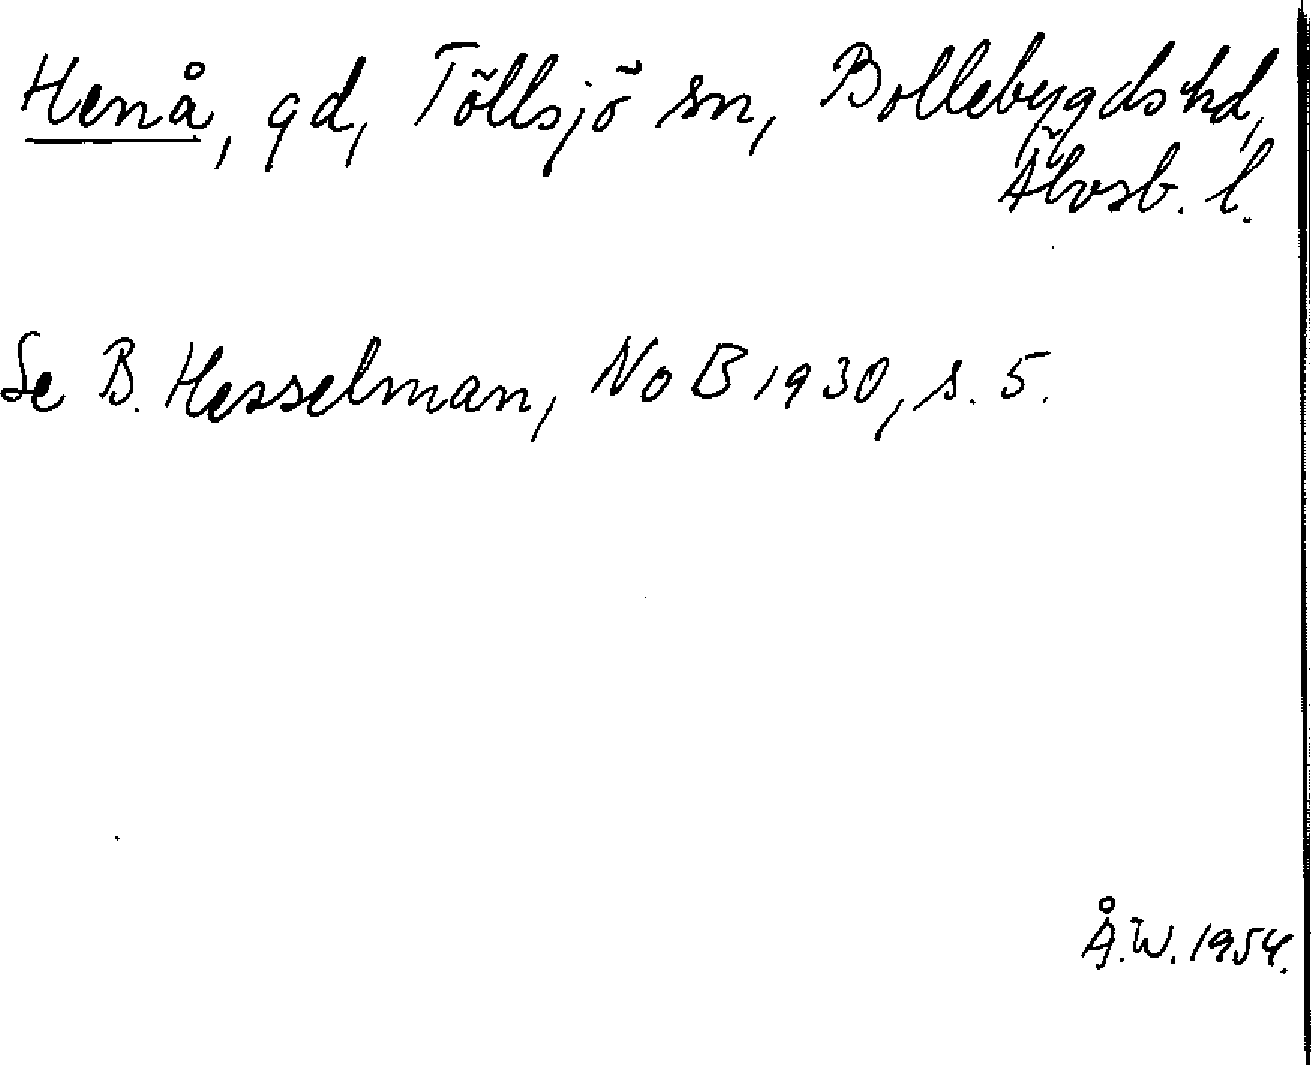 Henå, gd, Töllsjö sn, Bollebygds hd,
Älvsb. l.
Se B. Hesselman, NoB 1930, s. 5.
Å.W. 1954.